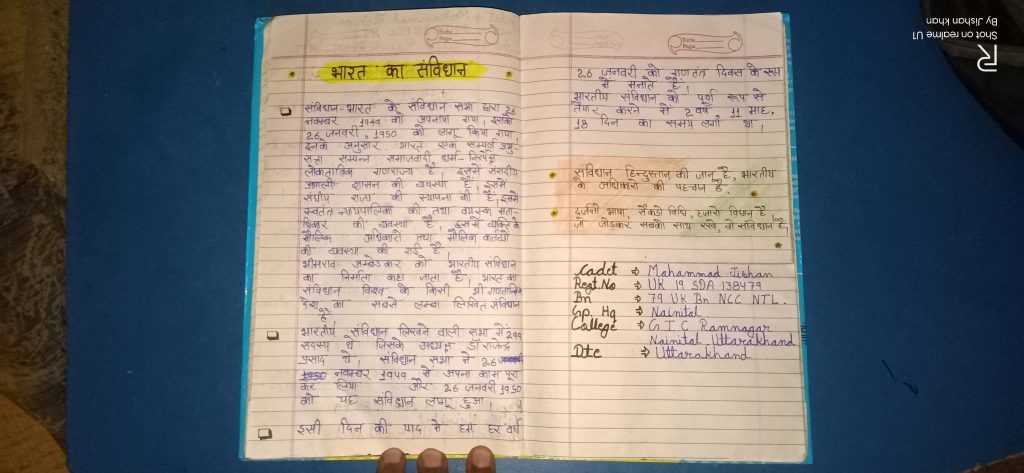 Date
Page
भारत का संविधान
संविधान-भारत के संविधान सभा द्वारा 26
नवम्बर 1949 को अपनाया गया, इसको
26 जनवरी, 1950 को लागू किया गया
इनके अनुसार भारत एक सम्पूर्ण प्रभु-
सत्ता सम्पन्न समाजवादी धर्म-निरपेक्ष
लोकतांत्रिक गणराज्य है, इसमें संसदीय
प्रणाली शासन की व्यवस्था है, इसमें
संघीय राज्य की स्थापना की है, इसमें
स्वतंत्र न्यायपालिका की तथा व्यस्क मता-
धिकार की व्यवस्था है, इसमें व्यक्ति के
मौलिक अधिकारों तथा मौलिक कर्तव्यों
की व्यवस्था की गई है,
भीमराव अम्बेडकर को भारतीय संविधान
का निर्माता कहा जाता है, भारत का
संविधान विश्व के किसी भी गणतांत्रिक
देश का सबसे लम्बा लिखित संविधान
है,
भारतीय संविधान लिखने वाली सभा में 299
सदस्य थे जिसके अध्यक्ष डॉ राजेन्द्र
प्रसाद थे, संविधान सभा ने 26
1950 नवम्बर 1949 में अपना काम पूरा
कर लिया और 26 जनवरी 1950
को यह संविधान लागू हुआ,
इसी दिन की याद में हम हर वर्ष
Date
Page
26 जनवरी को गणतंत्र दिवस के रूप
में मनाते हैं,
भारतीय संविधान को पूर्ण रूप से
तैयार करने में 2 वर्ष 11 माह,
18 दिन का समय लगा था,
संविधान हिन्दुस्तान की जान है, भारतीय
के अधिकारों की पहचान है.
दर्जनों भाषा, सैंकड़ो विधि, हजारों विधान है,
जो जोड़कर सबको साथ रखे, वो संविधान है,
Cadet ⇒ Mohammad Jishan
Regt.No ⇒ UK 19 SDA 138479
Bn ⇒ 79 UK Bn NCC NTL.
Gp. Hq ⇒ Nainital
College ⇒ G I C Ramnagar
Nainital Uttarakhand
Dte ⇒ Uttarakhand
R
Shot on realme U1
By Jishan khan